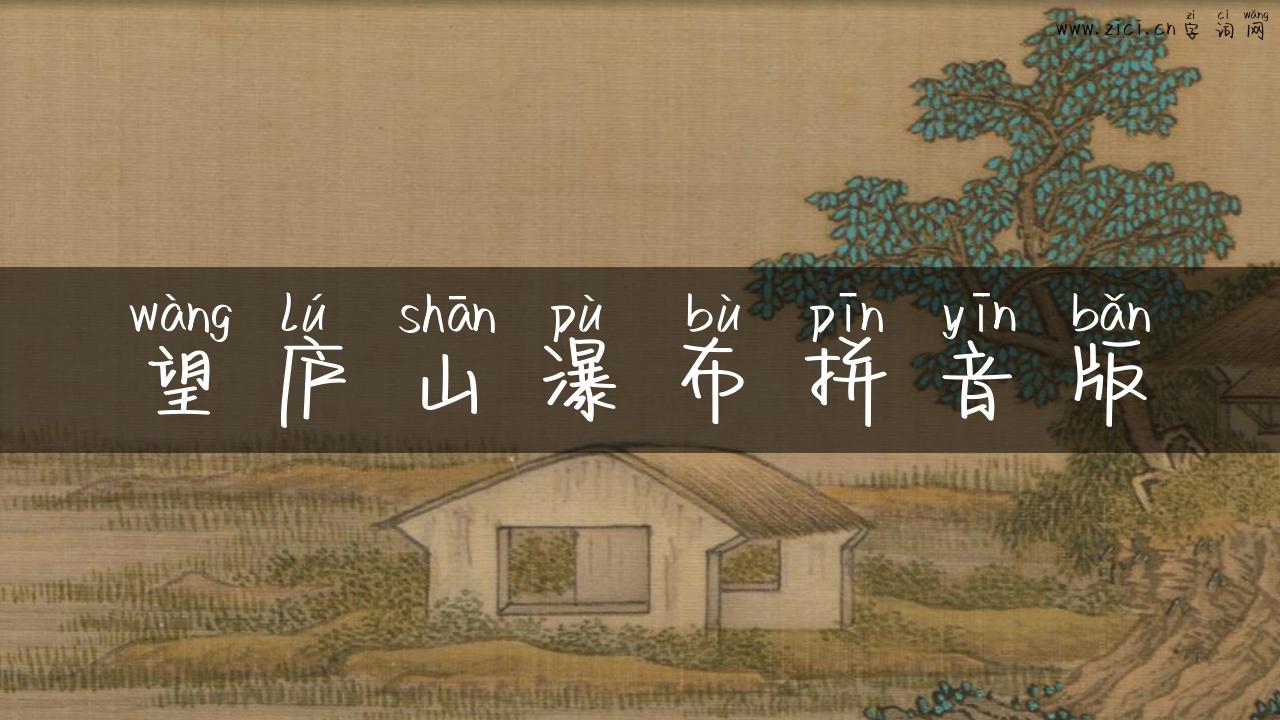 zì cí wǎng
www.zici.cn 字词网
wàng lú shān pù bù pīn yīn bǎn
望庐山瀑布拼音版